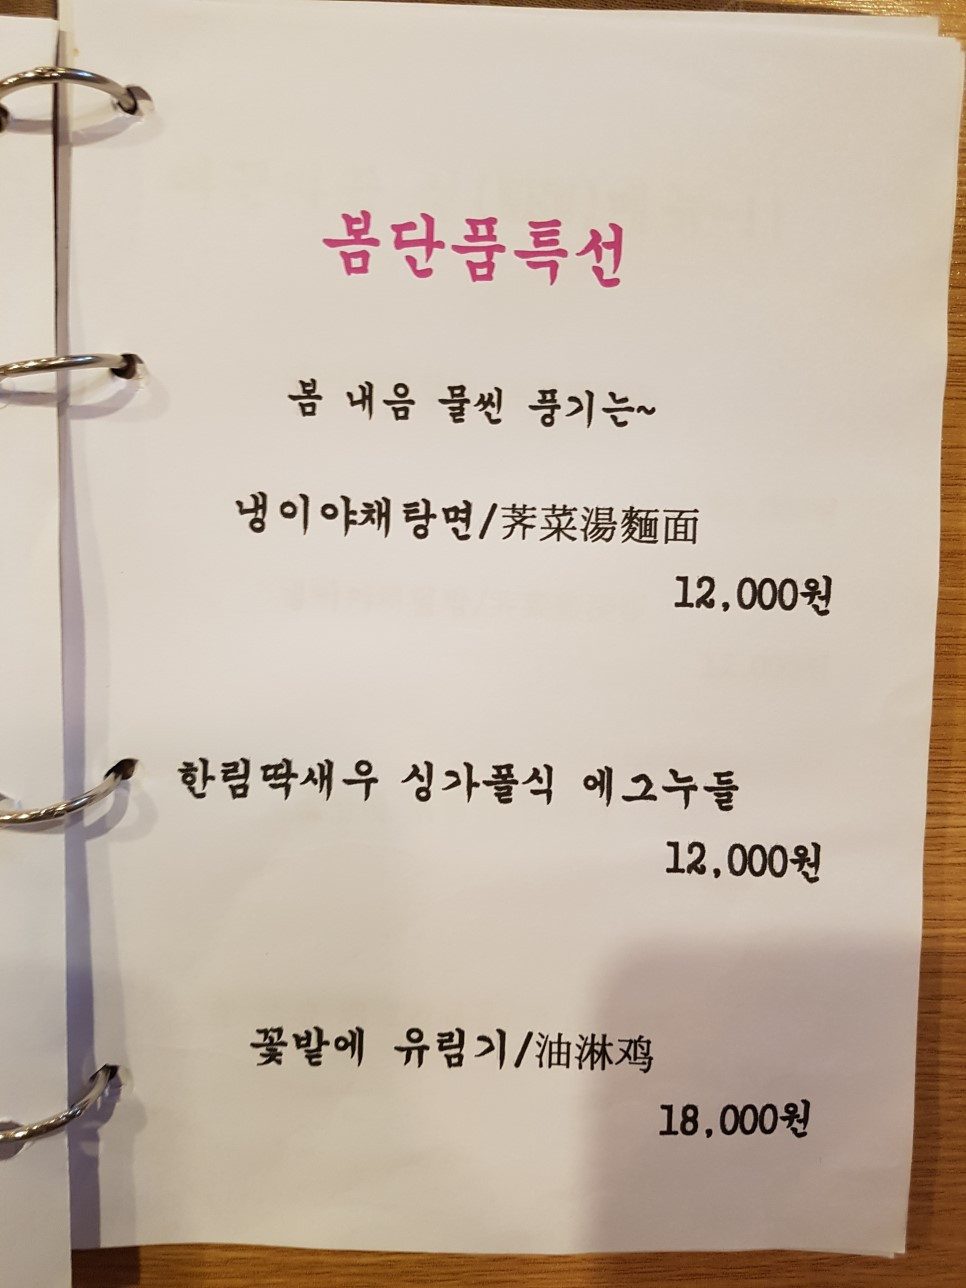 봄단품특선
봄 내음 물씬 풍기는~
냉이야채탕면/荠菜湯麵面
12,000원
한림딱새우 싱가폴식 에그누들
12,000원
꽃밭에 유림기/油淋鸡
18,000원